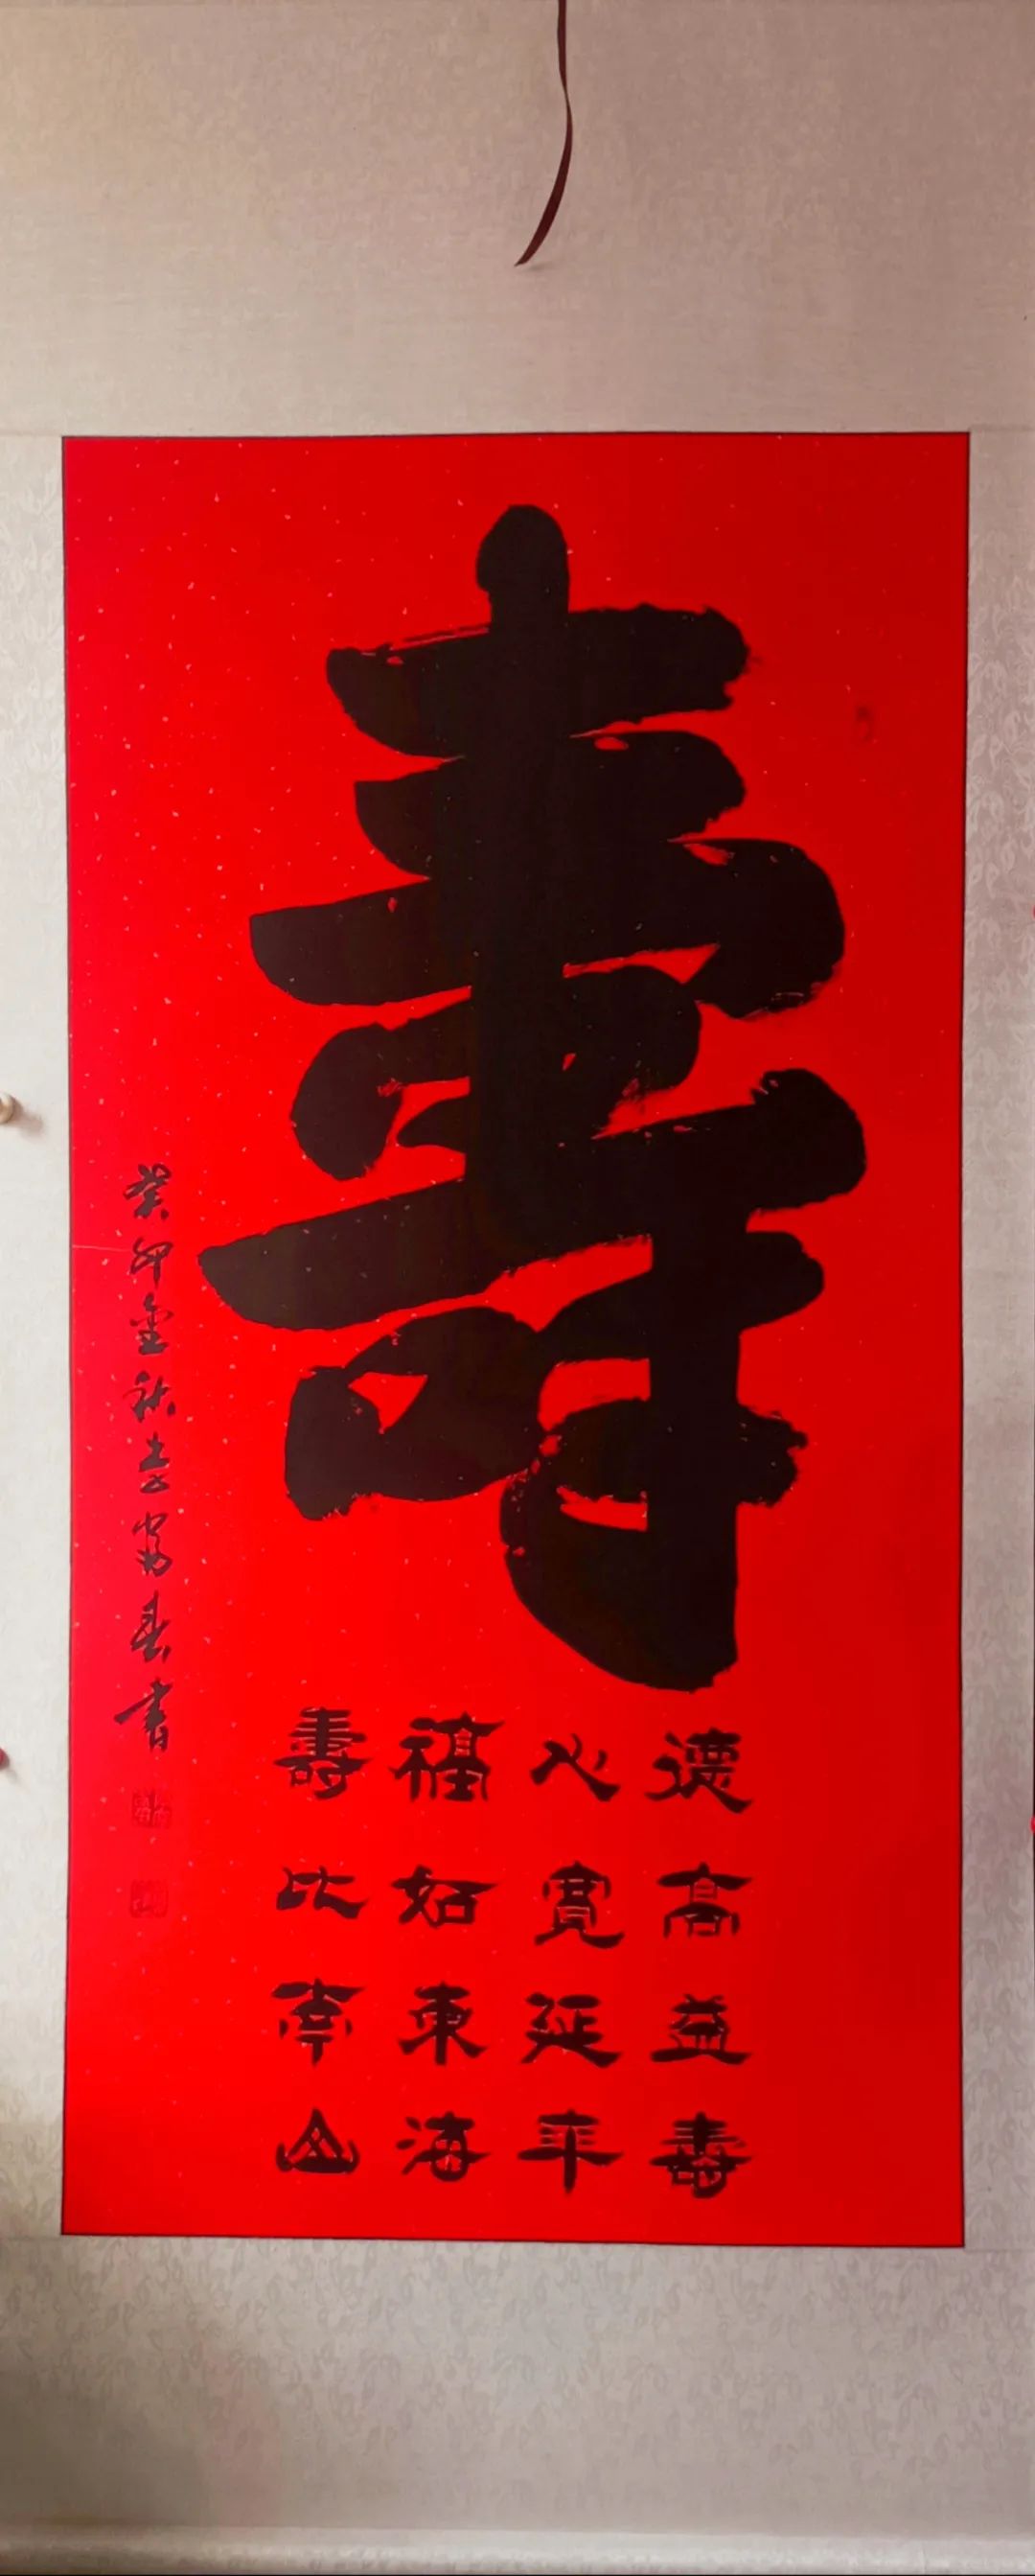 壽
德高益壽
心寬延年
福如東海
壽比南山
癸卯金秋李富春書